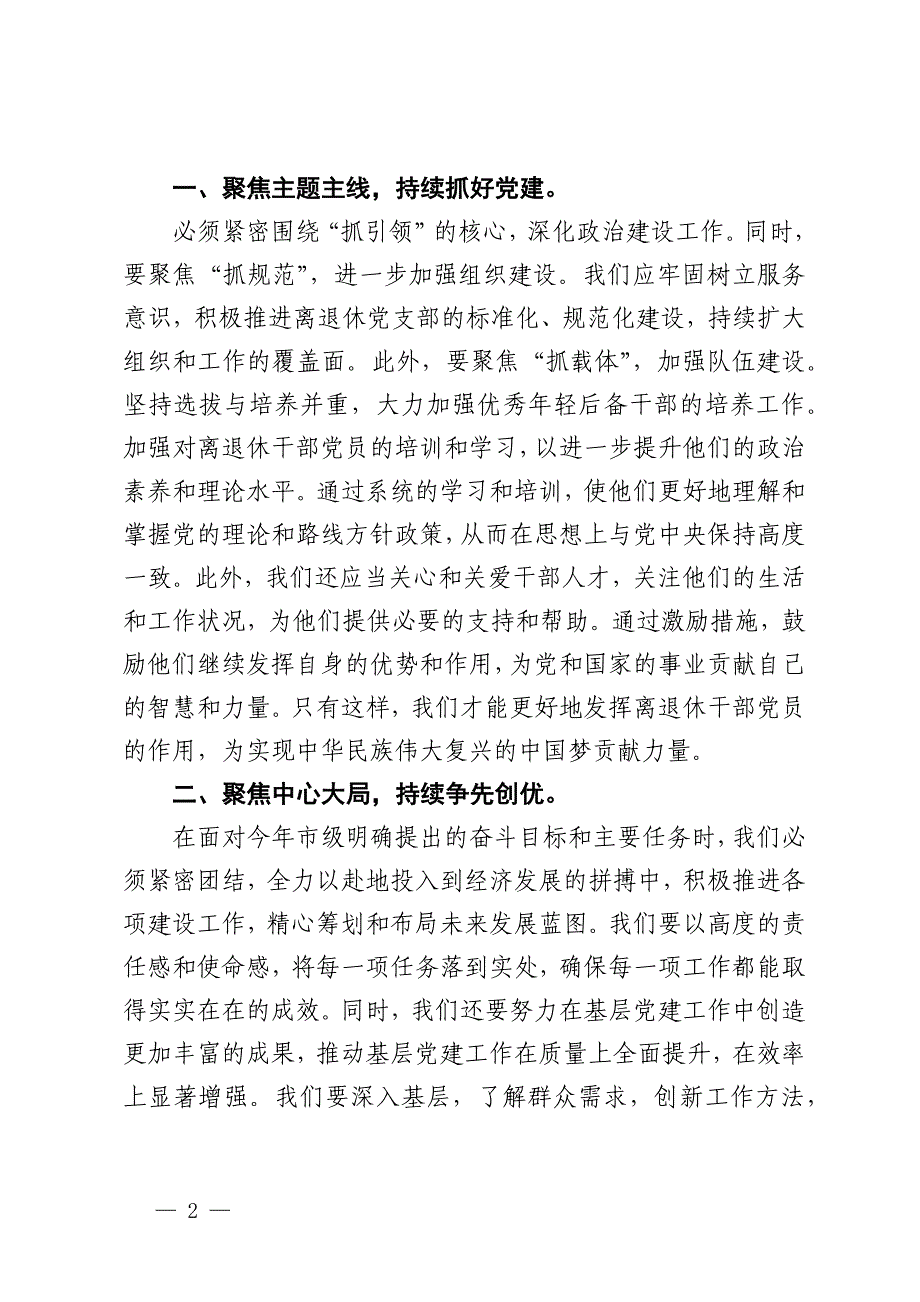 一、聚焦主题主线，持续抓好党建。
必须紧密围绕“抓引领”的核心，深化政治建设工作。同时，
要聚焦“抓规范”，进一步加强组织建设。我们应牢固树立服务
意识，积极推进离退休党支部的标准化、规范化建设，持续扩大
组织和工作的覆盖面。此外，要聚焦“抓载体”，加强队伍建设。
坚持选拔与培养并重，大力加强优秀年轻后备干部的培养工作。
加强对离退休干部党员的培训和学习，以进一步提升他们的政治
素养和理论水平。通过系统的学习和培训，使他们更好地理解和
掌握党的理论和路线方针政策，从而在思想上与党中央保持高度
一致。此外，我们还应当关心和关爱干部人才，关注他们的生活
和工作状况，为他们提供必要的支持和帮助。通过激励措施，鼓
励他们继续发挥自身的优势和作用，为党和国家的事业贡献自己
的智慧和力量。只有这样，我们才能更好地发挥离退休干部党员
的作用，为实现中华民族伟大复兴的中国梦贡献力量。
二、聚焦中心大局，持续争先创优。
在面对今年市级明确提出的奋斗目标和主要任务时，我们必
须紧密团结，全力以赴地投入到经济发展的拼搏中，积极推进各
项建设工作，精心筹划和布局未来发展蓝图。我们要以高度的责
任感和使命感，将每一项任务落到实处，确保每一项工作都能取
得实实在在的成效。同时，我们还要努力在基层党建工作中创造
更加丰富的成果，推动基层党建工作在质量上全面提升，在效率
上显著增强。我们要深入基层，了解群众需求，创新工作方法，
— 2 —